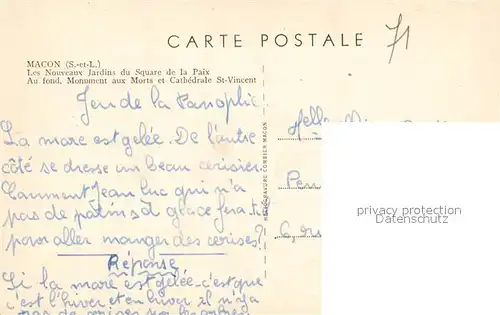 CARTE POSTALE
71
MACON (S.-et-L.)
Les Nouveaux Jardins du Square de la Paix
Au fond, Monument aux Morts et Cathédrale St-Vincent
Jeu de la Panoplie
La mare est gelée. De l'autre
côté se dresse un beau cerisier
Comment Jean Luc qui n'a
pas de patins à glace fera-t-il
pour aller manger des cerises?
Réponse
Si la mare est gelée c'est que
c'est l'hiver et en hiver il n'y a
pas de cerises sur les arbres
COMBIER MACON
privacy protection
Datenschutz